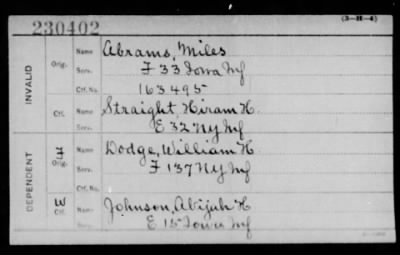 (3-H-4)
230402
INVALID
Orig.
Name
Abrams, Miles
Serv.
F 33 Iowa Inf
Ctf. No.
163495
Ctf.
Name
Straight, Hiram H.
Serv.
E 32 NY Inf
DEPENDENT
Orig.
Name
Dodge, William H.
Serv.
F 137 NY Inf
Ctf. No.
W
Ctf.
Name
Johnson, Abijah H
Serv.
E 15 Iowa Inf